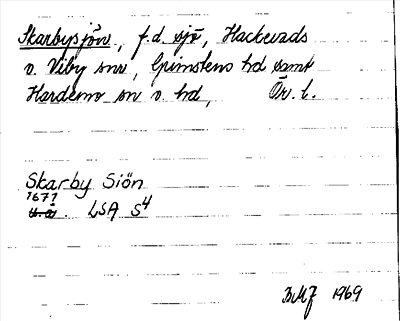 Skarbysjön, f.d. sjö, Hackvads
o. Viby snr, Grimstens hd samt
Hardemo sn o. hd, Ör. l.
Skarby Siön
1671
u.å. LSA S4
BMJ 1969